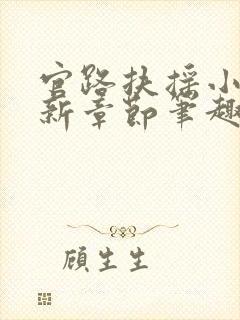 官路扶摇小
新章节笔趣
顾生生